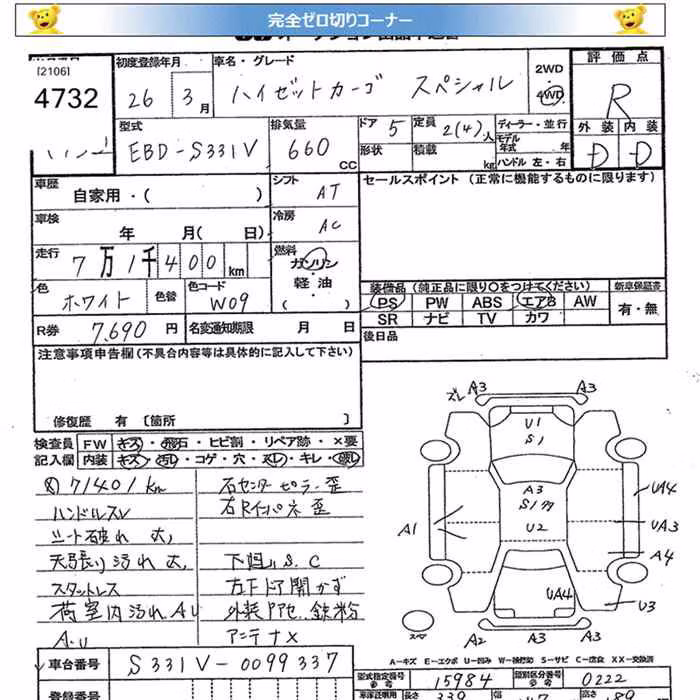 完全ゼロ切りコーナー
[2106]
4732
初度登録年月
26年 3月
車名・グレード
ハイゼットカーゴ スペシャル
2WD
4WD
評価点
R
外装 内装
D D
型式
EBD-S331V
排気量
660 CC
ドア 5
定員 2(4)人
ディーラー・並行
形状
積載 kg
モデル年式 年
ハンドル 左・右
車歴
自家用・( )
シフト
AT
セールスポイント (正常に機能するものに限ります)
車検
年 月( 日)
冷房
AC
走行
7万1千400km
燃料
ガソリン
軽・油
( )
色
ホワイト
色替
色コード
W09
装備品 (純正品に限り○をつけてください)
新車保証書
PS PW ABS エアB AW
有・無
SR ナビ TV カワ
R券 7,690 円
名変通知期限 月 日
後日品
注意事項申告欄 (不具合内容等は具体的に記入して下さい)
修復歴 有 〔箇所 〕
検査員
記入欄
FW キズ・飛石・ヒビ割・リペア跡・×要
内装 キズ・汚レ・コゲ・穴・スレ・キレ・
71401km
ハンドルスレ
シート破れ 大
天張り汚れ 大
スタットレス
荷室内汚れ A U
A.U
石センターピラー歪
石Rインパネ歪
下廻りS.C
左下ドア開かず
鉄粉
アンテナX
ズレ A3 A3
U1
S1
A3
S1
U2
A1
UA4
UA3
A4
UA4
U3
スペア
A2 A3 A3
A-キズ E-エクボ U-凹み W-補修跡 S-サビ C-腐食 XX-交換済
車台番号 S331V-0099337
型式指定番号 15984
類別区分番号 0222
登録番号
長さ